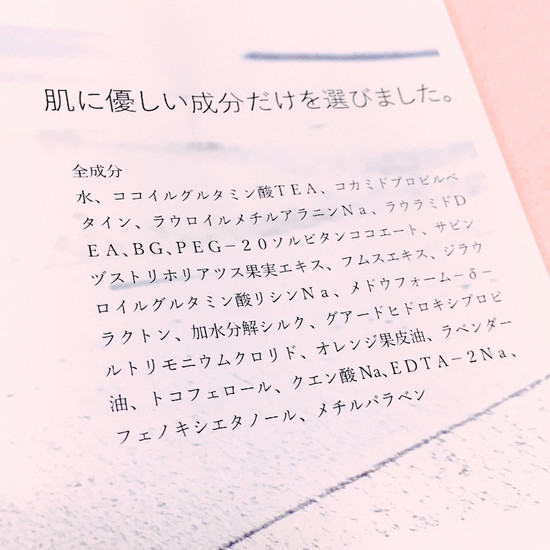 肌に優しい成分だけを選びました。
全成分
水、ココイルグルタミン酸TEA、コカミドプロピルベ
タイン、ラウロイルメチルアラニンNa、ラウラミドD
EA、BG、PEG-20ソルビタンココエート、サピン
ヅストリホリアツス果実エキス、フムスエキス、ジラウ
ロイルグルタミン酸リシンNa、メドウフォーム-δ-
ラクトン、加水分解シルク、グアードヒドロキシプロピ
ルトリモニウムクロリド、オレンジ果皮油、ラベンダー
油、トコフェロール、クエン酸Na、EDTA-2Na、
フェノキシエタノール、メチルパラベン